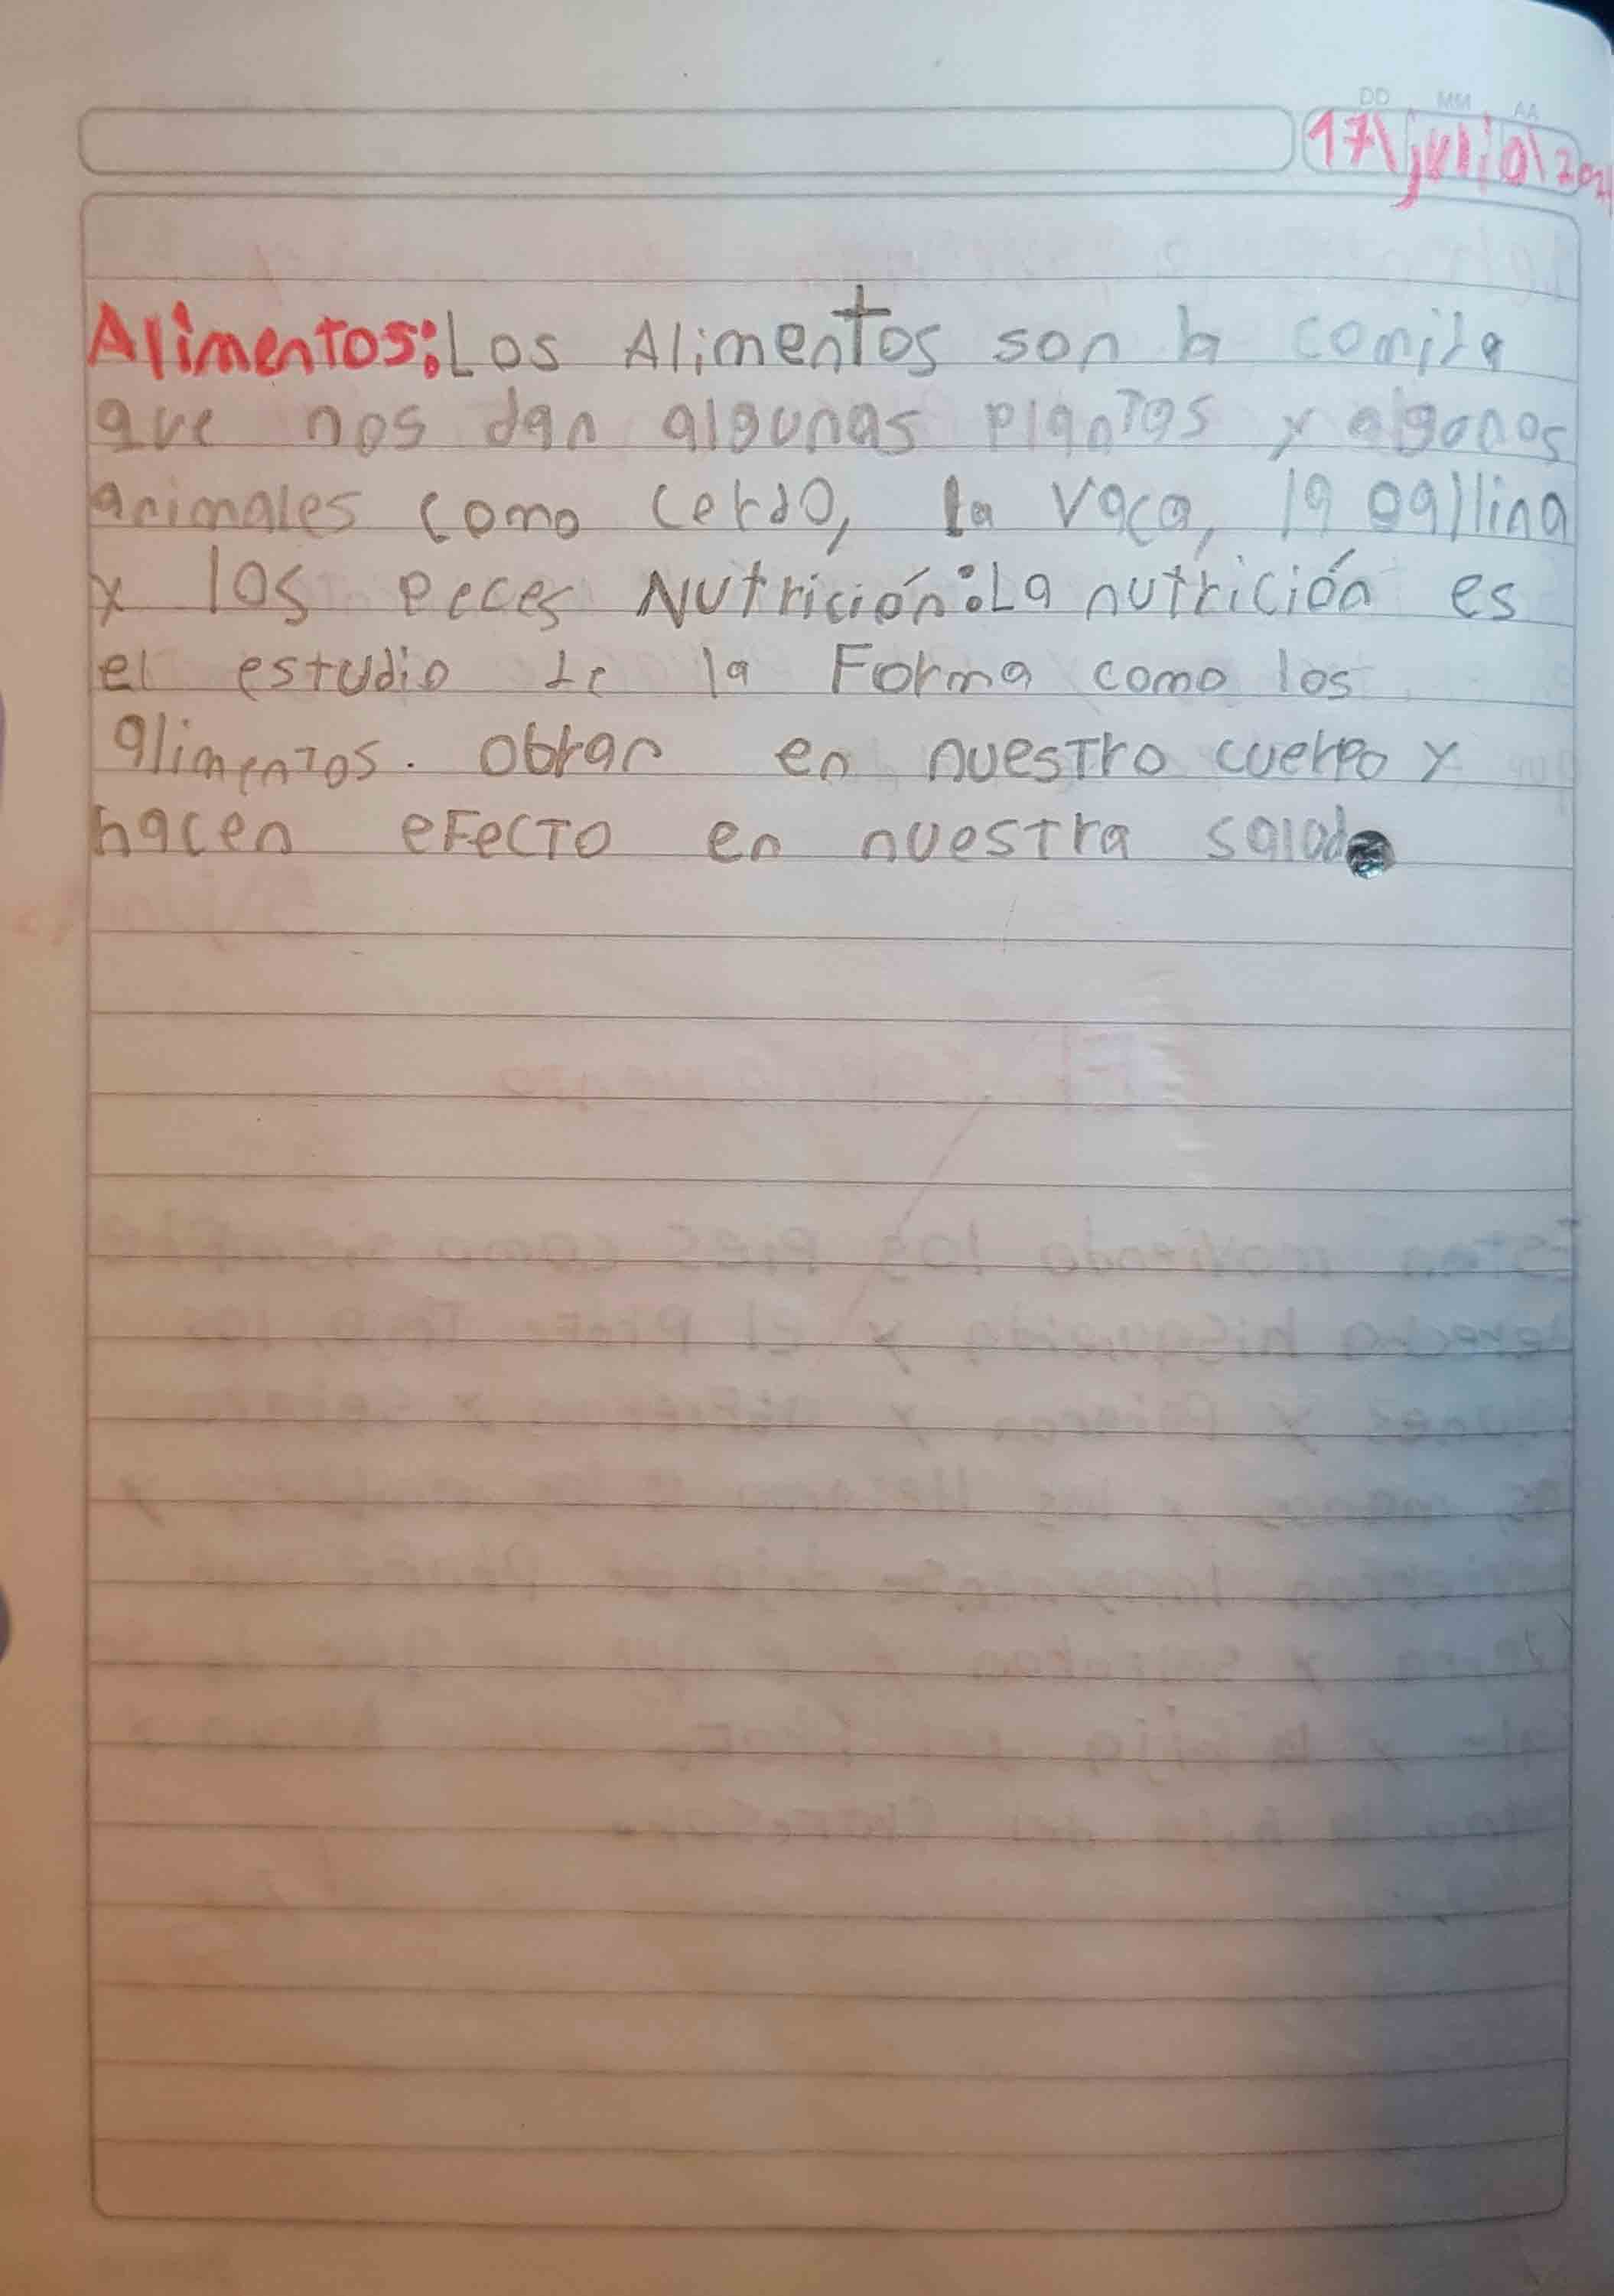 DD MM AA
17\julio\2021
Alimentos: Los Alimentos son la comida
que nos dan algunas plantas y algunos
animales como cerdo, la vaca, la gallina
y los peces Nutrición: La nutrición es
el estudio de la Forma como los
alimentos. obran en nuestro cuerpo y
hacen eFecto en nuestra salud.